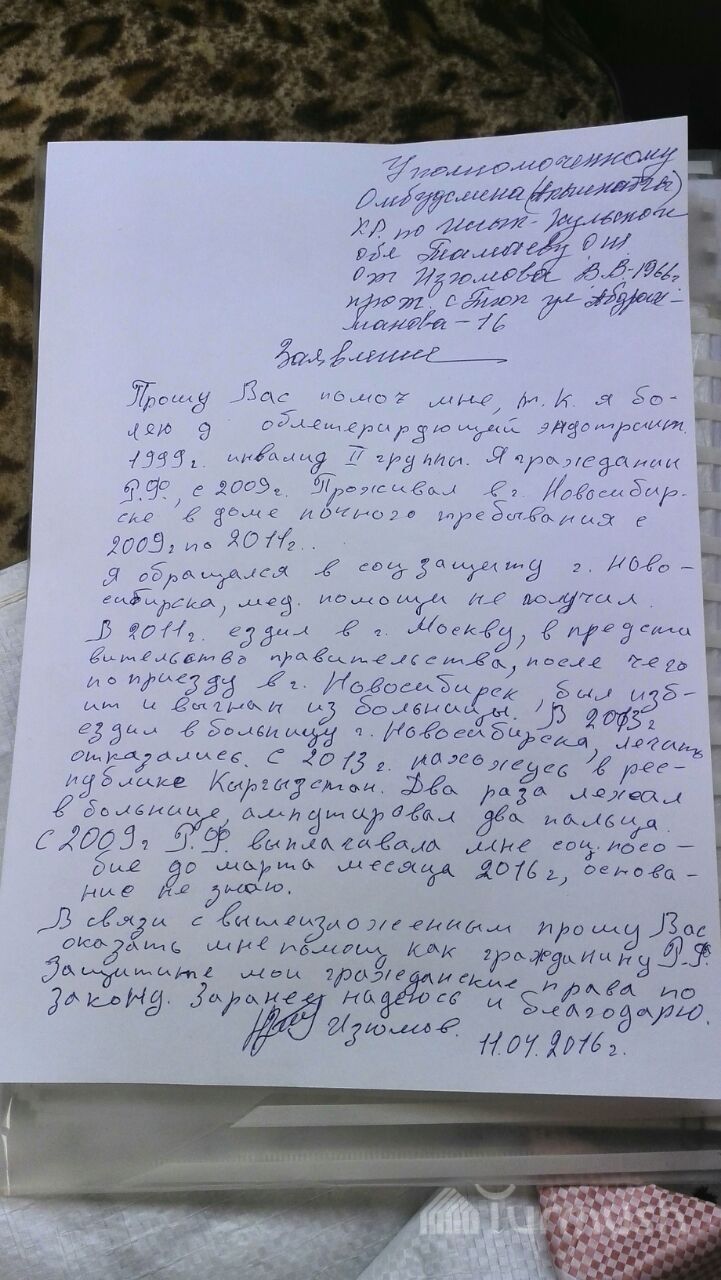 Уполномоченному
Омбудсмена (Акыйкатчы)
КР. по Иссык-Кульской
обл
От Изюмова В.В-1966г
прож. с Тюп ул Абдрах-
манова-16
Заявление
Прошу Вас помоч мне, т.к. я бо-
лею д облетерирдующий эндотраит.
1999г. инвалид II группы. Я гражданин
Р.Ф., с 2009г. Проживал в г. Новосибир-
ске в доме ночного требывания с
2009г по 2011г..
Я обращался в соц защиту г. Ново-
сибирска, мед. помощи не получил.
В 2011г. ездил в г. Москву, в предста
вительство правительства, после чего
по приезду в г. Новосибирск, был изб-
ит и выгнан из больницы. В 2013г
ездил в больницу г. Новосибирска, лечить
отказались. С 2013г. нахожусь в рес-
публике Кыргызстан. Два раза лежал
в больнице, ампутировал два пальца.
С 2009г Р.Ф. выплачивала мне соц. посо-
бие до марта месяца 2016г, основа-
ние не знаю.
В связи с вышеизложенным прошу Вас
оказать мне помощ как гражданину Р.Ф.
Защитите мои гражданские права по
закону. Заранее надеюсь и благодарю.
Изюмов. 11.04.2016г.
Turmush